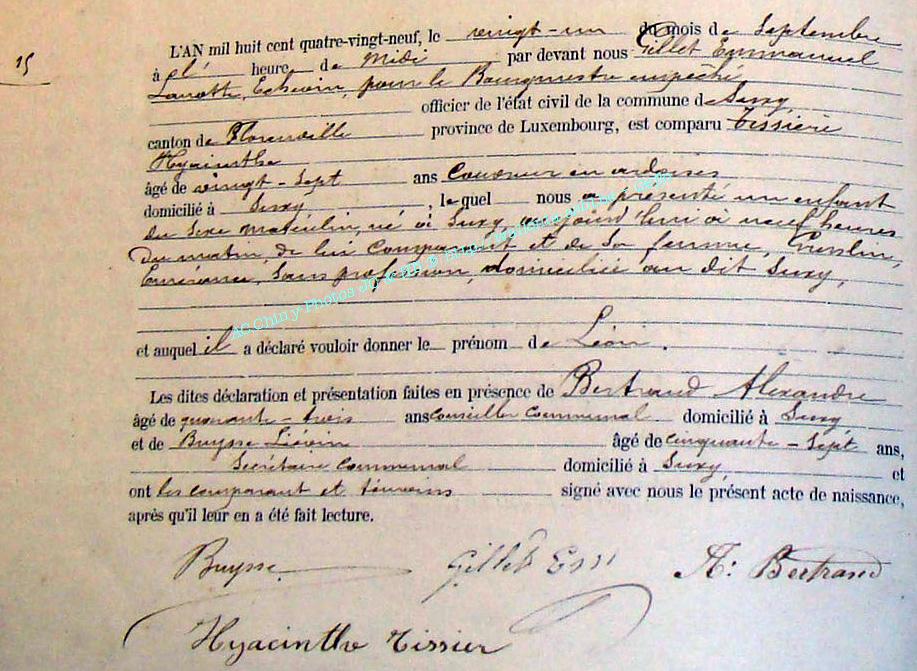 15
L'AN mil huit cent quatre-vingt-neuf, le vingt-un du mois de Septembre
à l' heure de Midi par devant nous Gillet Emmanuel
Echevin, pour le Bourgmestre empêché,
officier de l'état civil de la commune de Suxy,
canton de Florenville province de Luxembourg, est comparu Tissière
Hyacinthe
âgé de vingt-sept ans Couvreur en ardoises
domicilié à Suxy, lequel nous a présenté un enfant
du sexe masculin, né à Suxy, aujourd'hui à neuf heures
du matin, de lui comparant et de sa femme,
sans profession, domiciliée au dit Suxy,
AC Chiny Photos
et auquel il a déclaré vouloir donner le prénom de Léon.
Les dites déclaration et présentation faites en présence de Bertrand Alexandre
âgé de quarante-trois ans conseiller communal domicilié à Suxy
et de Buysse Liévin âgé de cinquante-sept ans,
Secrétaire communal domicilié à Suxy, et
ont les comparant et témoins signé avec nous le présent acte de naissance,
après qu'il leur en a été fait lecture.
Buysse Gillet Em A: Bertrand
Hyacinthe Tissier